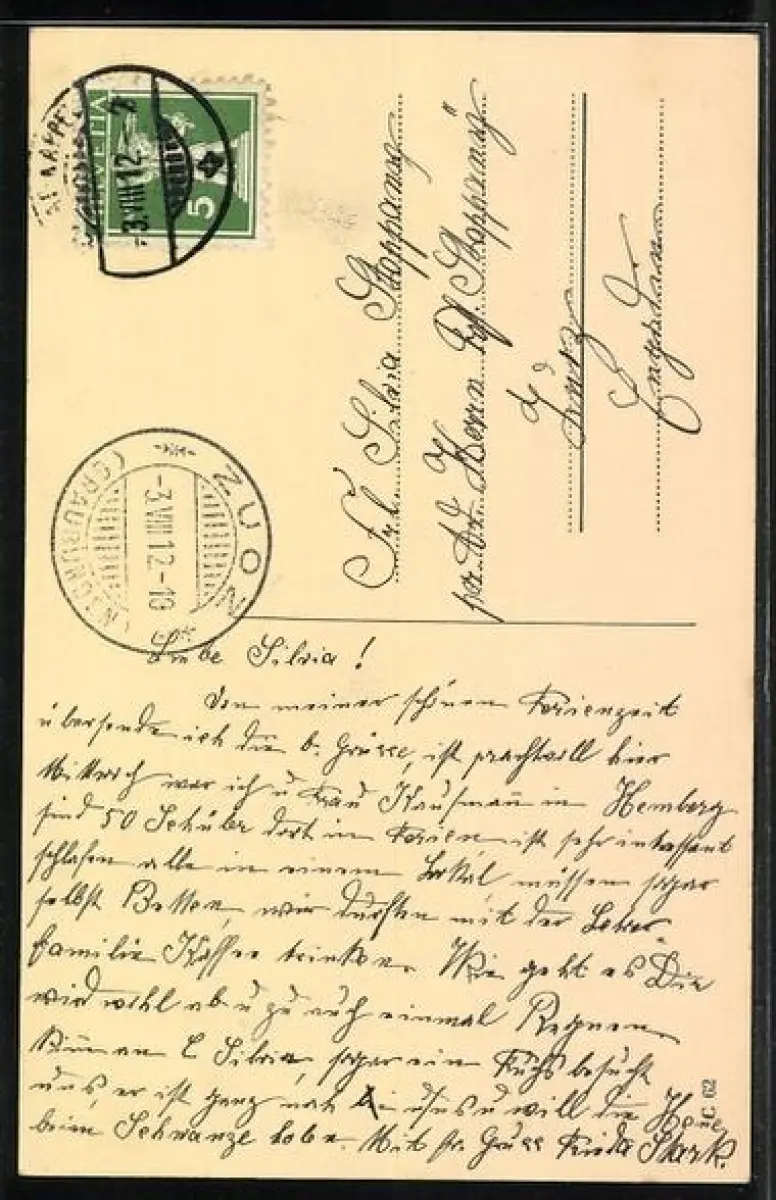 HELVETIA
5
-3.VIII.12
ZUOZ
-3.VIII.12-10
(GRAUBÜNDEN)
Frl. Silvia Stoppany
pr. Adr. Herrn Prf. Stoppany
Zuoz
Engadin
Liebe Silvia!
Von meiner schönen Ferienzeit
übersende ich dir b. Grüsse, ist prachtvoll hier
Mittwoch war ich u Frau Kaufmann in Hemberg
sind 50 Schüler dort in Ferien ist sehr interessant
schlafen alle in einem Lokal müssen sogar
selbst Betten, wir durften mit der Lehrer
familie Kaffee trinken. Wie geht es Dir
wird wohl ab u zu auch einmal Regnen
L Silvia, sogar ein Fuchs besucht
uns, er ist ganz nah bei uns u will die
beim Schwanze holen. Mit fr. Gruss Frieda Stark.
C 62